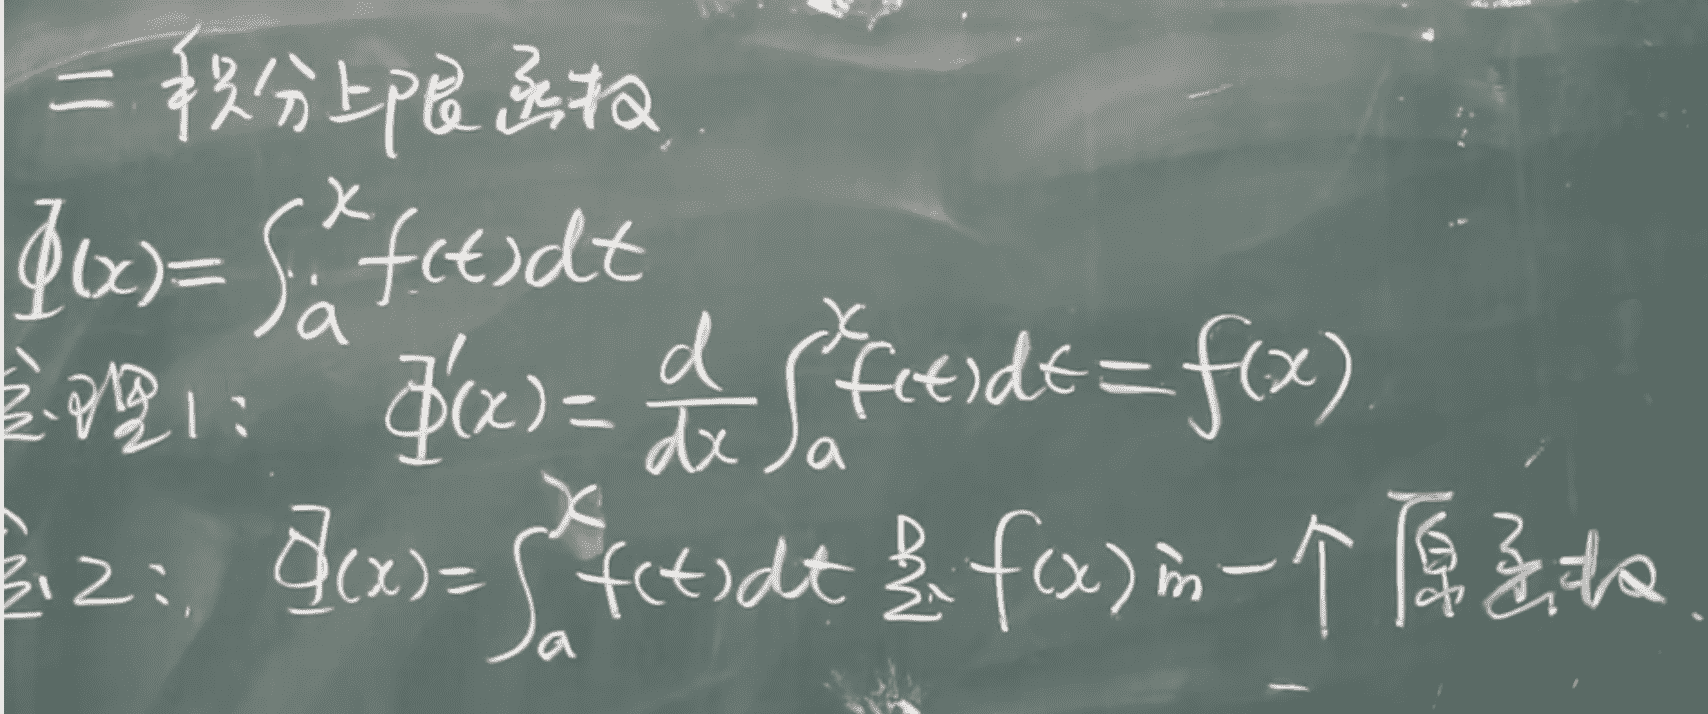 二、积分上限函数
Φ(x)=∫ₐˣ f(t)dt
定理1: Φ'(x)=d/dx ∫ₐˣ f(t)dt=f(x)
定2: Φ(x)=∫ₐˣ f(t)dt 是 f(x) 的一个原函数、